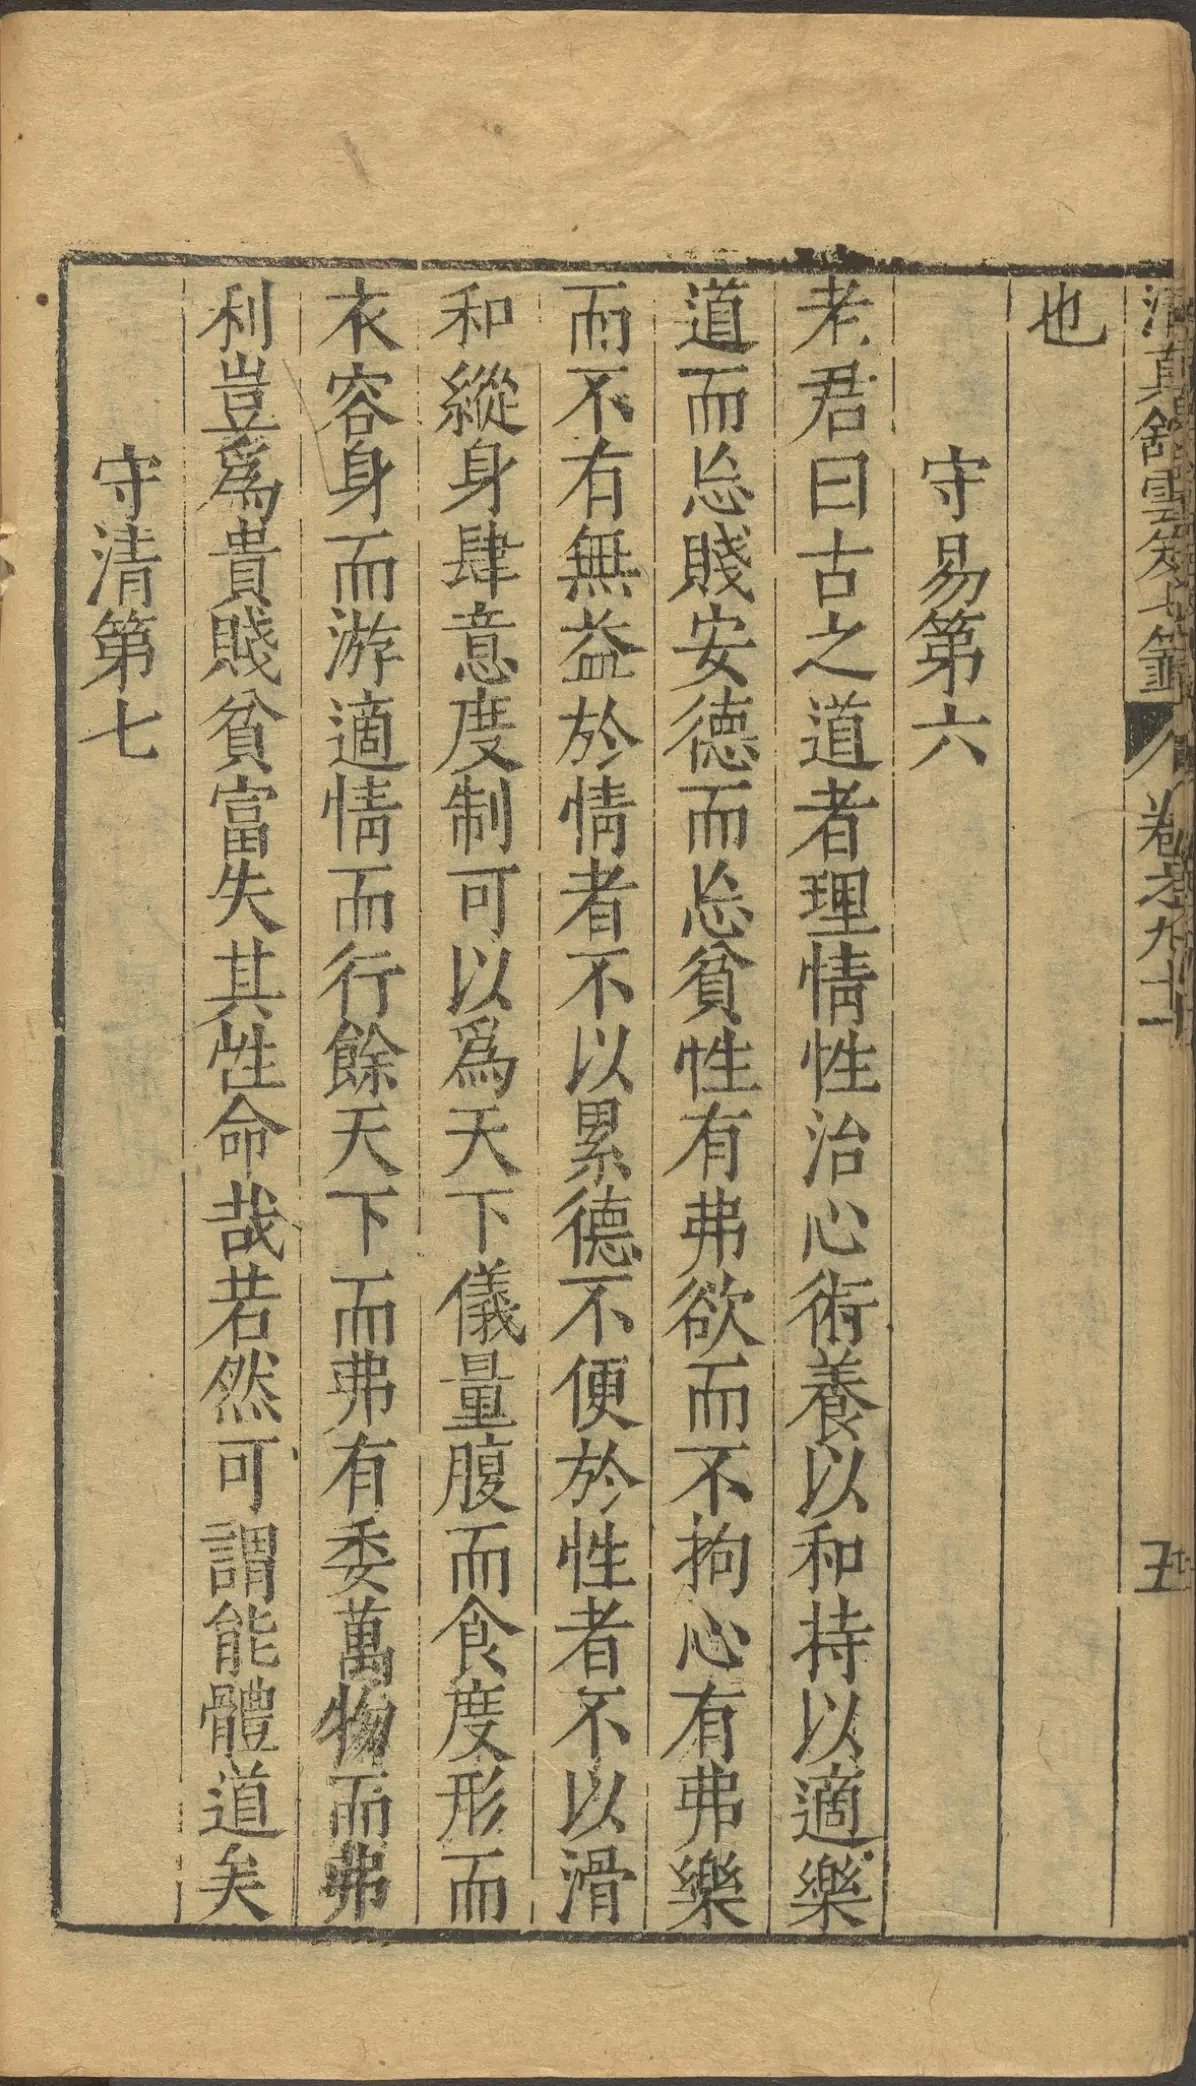 清真館雲笈七籤 卷之九十一 五
也
守易第六
老君曰古之道者理情性治心術養以和持以適樂
道而忘賤安德而忘貧性有弗欲而不拘心有弗樂
而不有無益於情者不以累德不便於性者不以滑
和縱身肆意度制可以爲天下儀量腹而食度形而
衣容身而游適情而行餘天下而弗有委萬物而弗
利豈爲貴賤貧富失其性命哉若然可謂能體道矣
守清第七